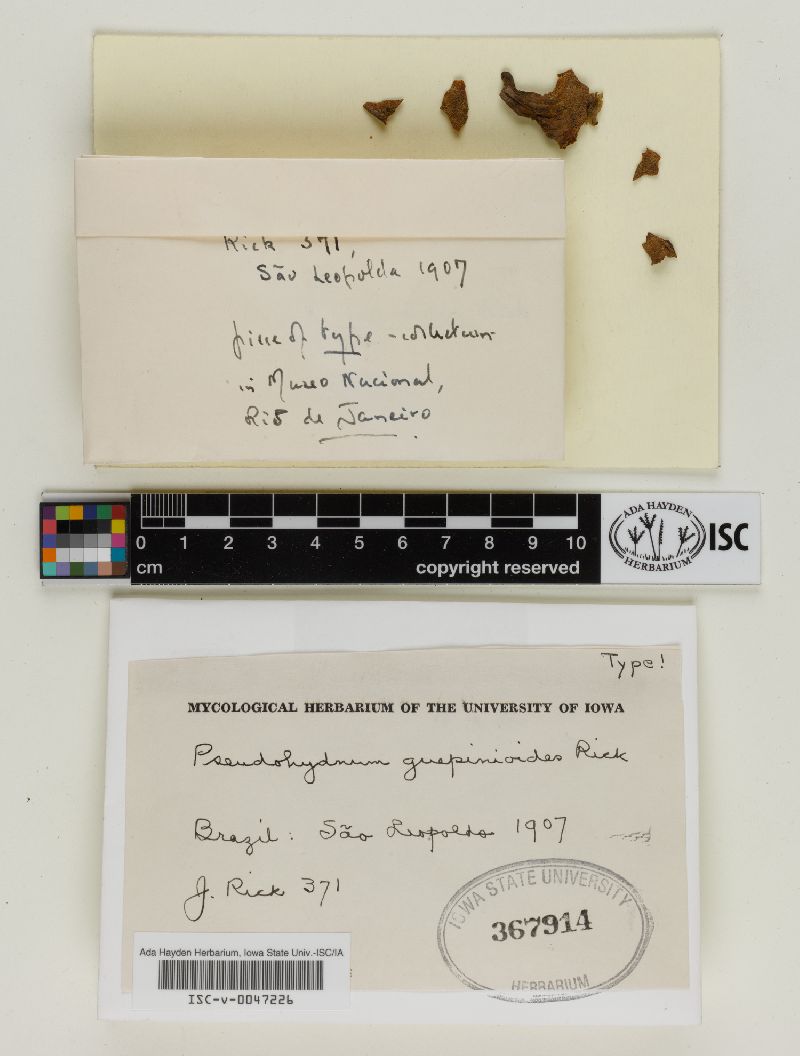 Rick 371,
São Leopolda 1907
piece of type-collection
in Museo Nacional,
Rió de Janeiro
0 1 2 3 4 5 6 7 8 9 10
cm copyright reserved
ADA HAYDEN
HERBARIUM
ISC
Type!
MYCOLOGICAL HERBARIUM OF THE UNIVERSITY OF IOWA
Pseudohydnum guepinioides Rick
Brazil: São Leopoldo 1907
J. Rick 371
IOWA STATE UNIVERSITY
367914
HERBARIUM
Ada Hayden Herbarium, Iowa State Univ.-ISC/IA
ISC-v-0047226